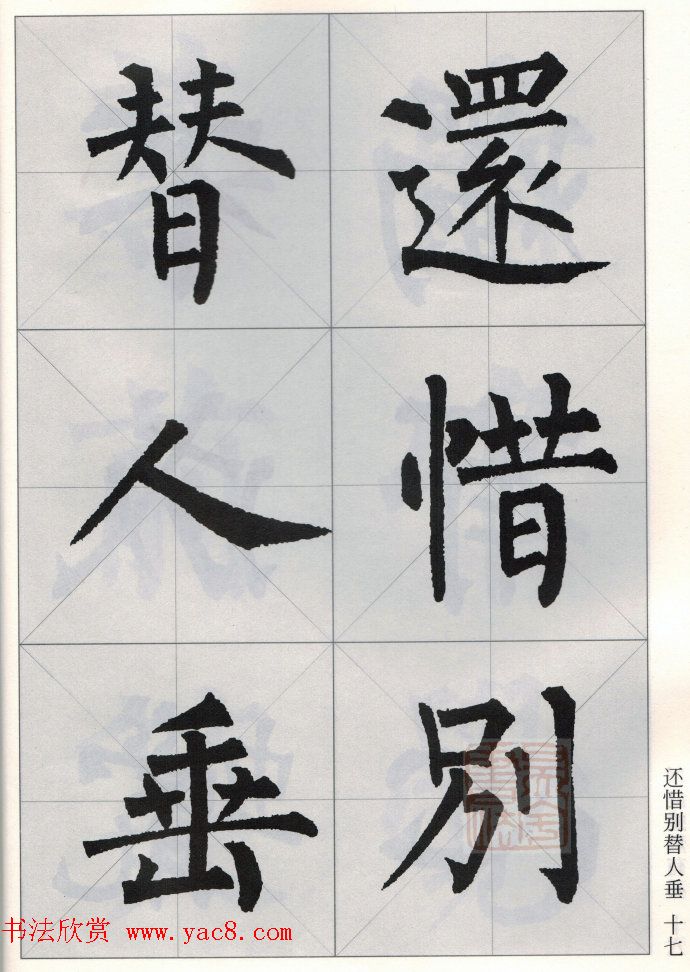 還惜別
替人垂
还惜别替人垂 十七
书法欣赏 www.yac8.com